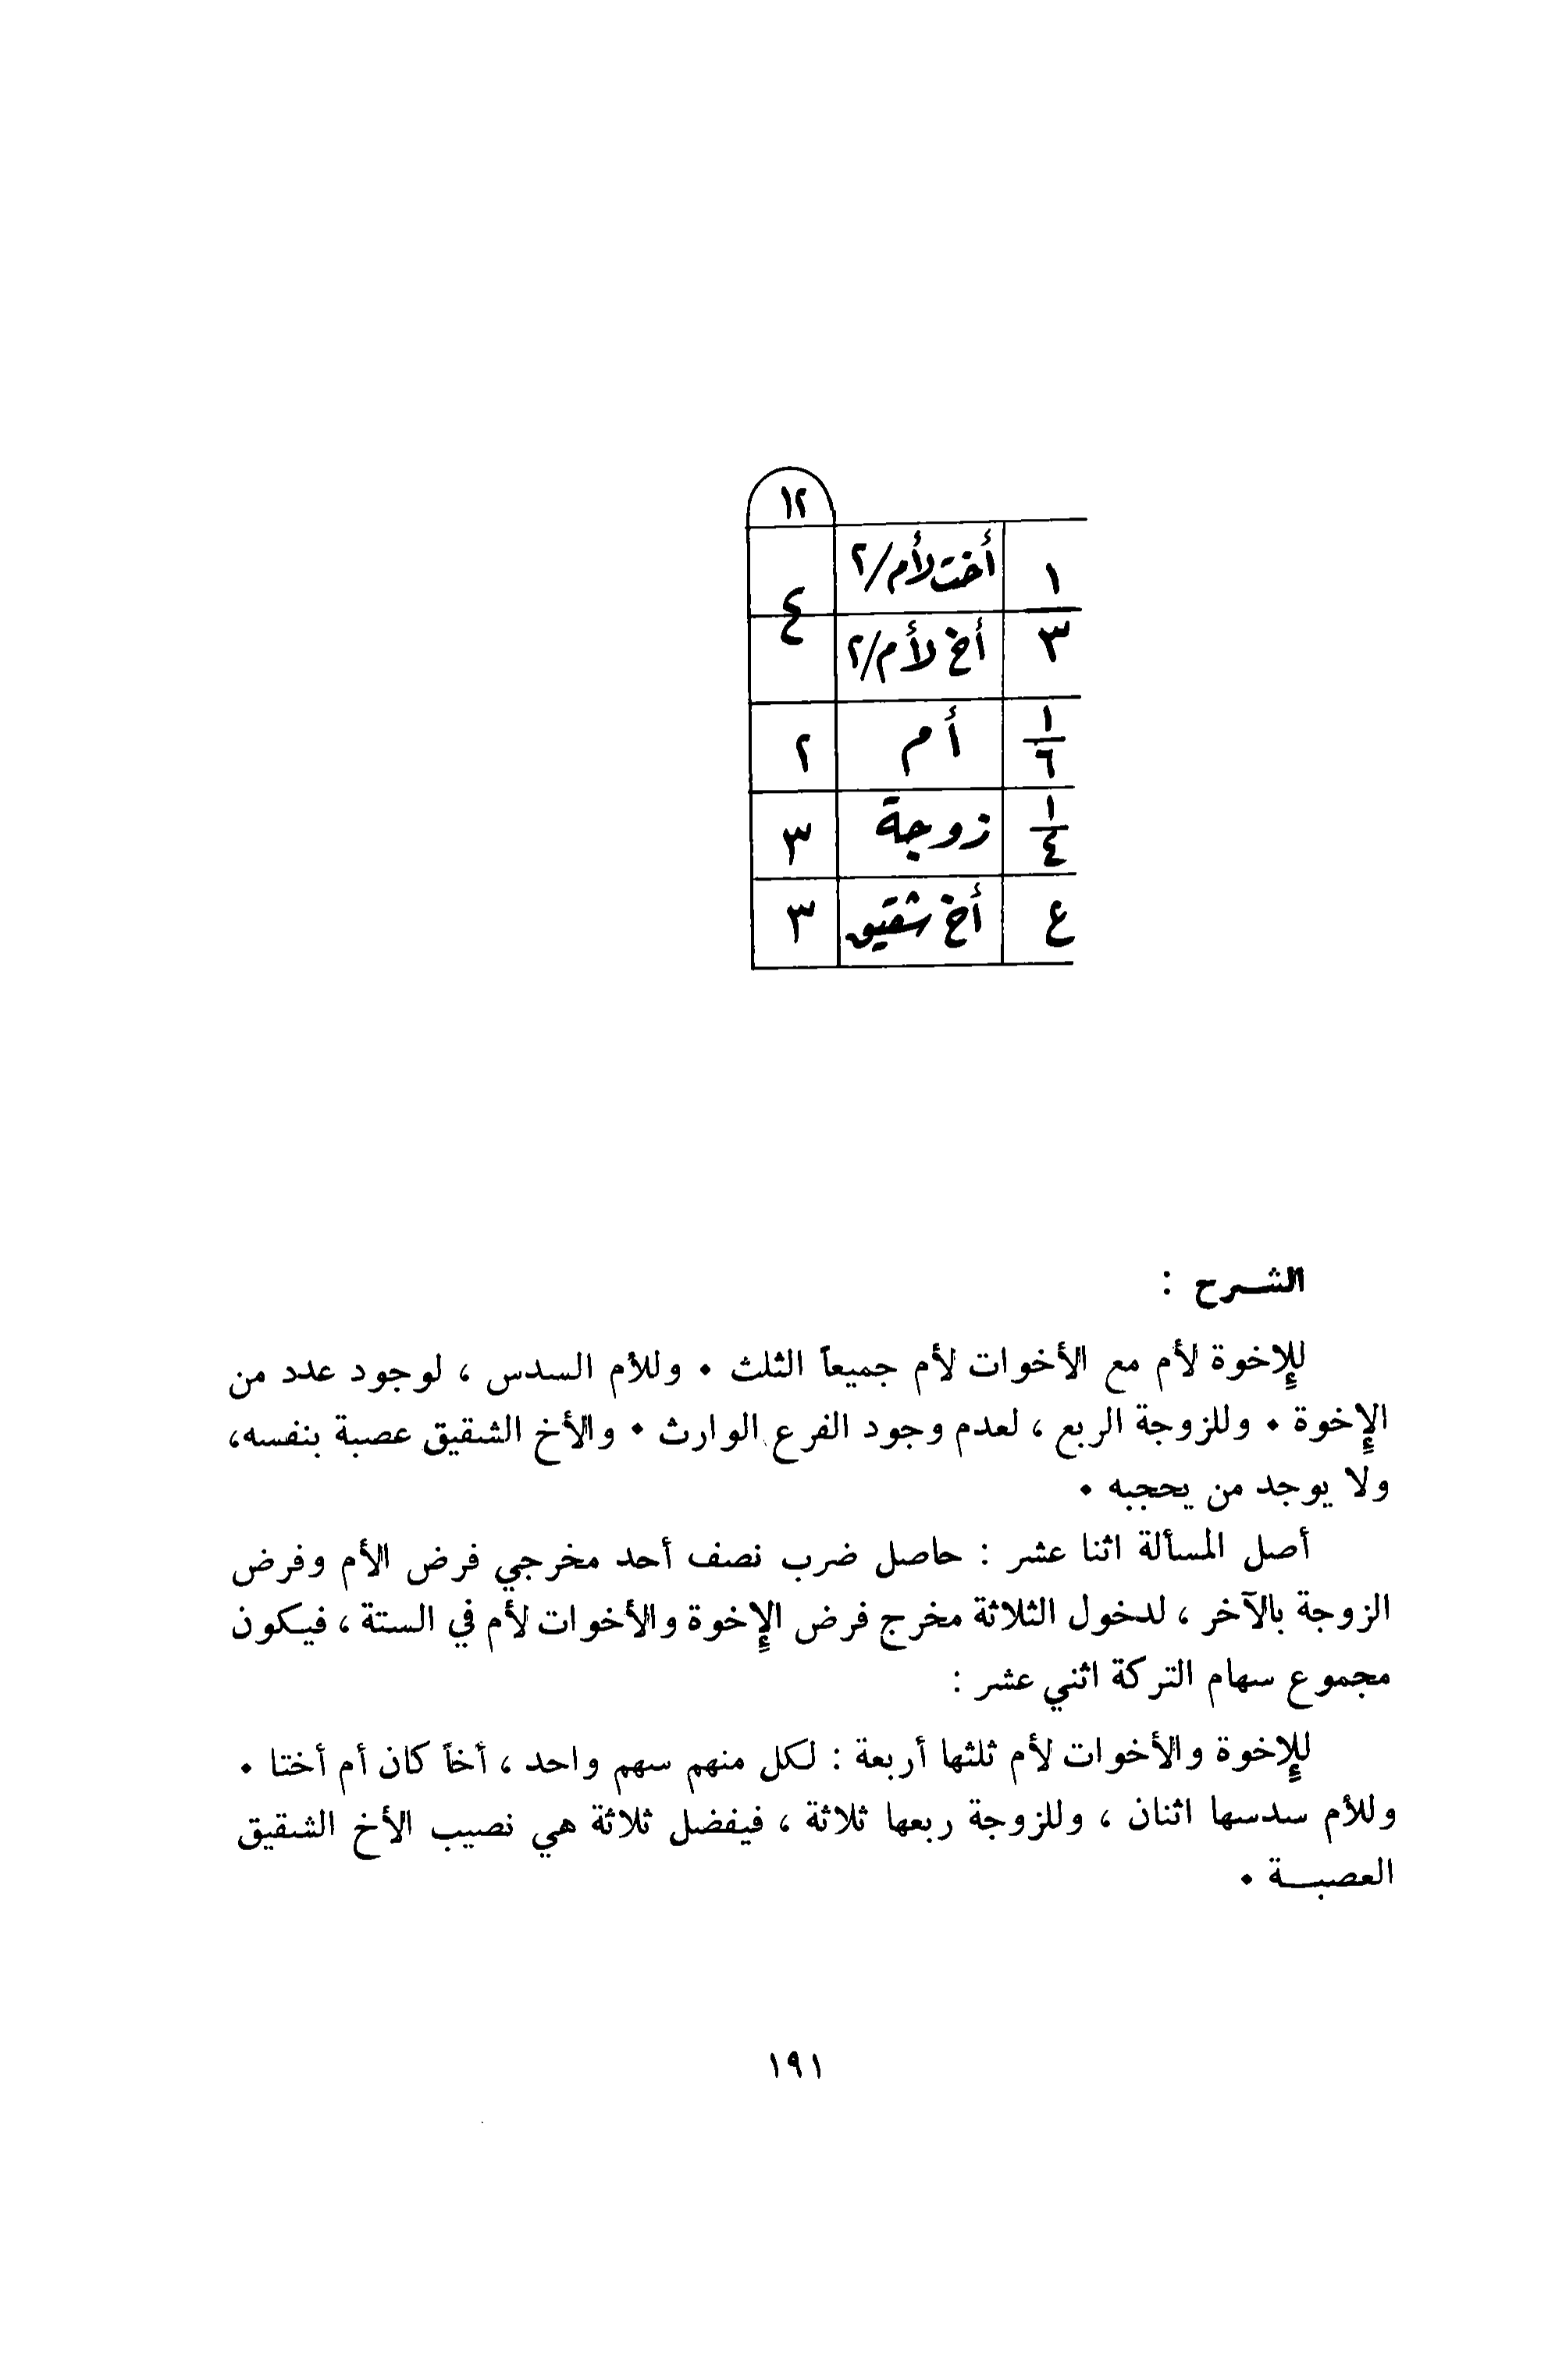 ١٢
١ أخت لأم/٢ ٤
٣ أخ لأم/٢
١/٦ أم ٢
١/٤ زوجة ٣
ع أخ شقيق ٣
الشـرح :
للإخوة لأم مع الأخوات لأم جميعاً الثلث . وللأم السدس ، لوجود عدد من
الإخوة . وللزوجة الربع ، لعدم وجود الفرع الوارث . والأخ الشقيق عصبة بنفسه،
ولا يوجد من يحجبه .
أصل المسألة اثنا عشر : حاصل ضرب نصف أحد مخرجي فرض الأم وفرض
الزوجة بالآخر ، لدخول الثلاثة مخرج فرض الإخوة والأخوات لأم في الستة ، فيكون
مجموع سهام التركة اثني عشر :
للإخوة والأخوات لأم ثلثها أربعة : لكل منهم سهم واحد ، أخاً كان أم أختا .
وللأم سدسها اثنان ، وللزوجة ربعها ثلاثة ، فيفضل ثلاثة هي نصيب الأخ الشقيق
العصبـة .
١٩١